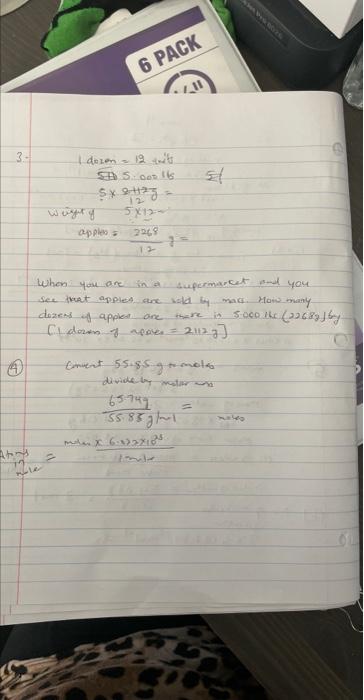 6 PACK
3-
1 dozen = 12 units
5.000 lbs
5 x 2112g =
12
Weight of 5x12
apples = 2268 g =
12
When you are in a supermarket and you
see that apples are sold by mass. How many
dozens of apples are there in 5.000 lbs (2268g) by
[1 dozen of apples = 2112 g]
4
Convert 55.85 g to moles
divide by molar mass
65.74g =
55.85 g/mol moles
moles x 6.022x10²³
Atoms in mole = 1 mole